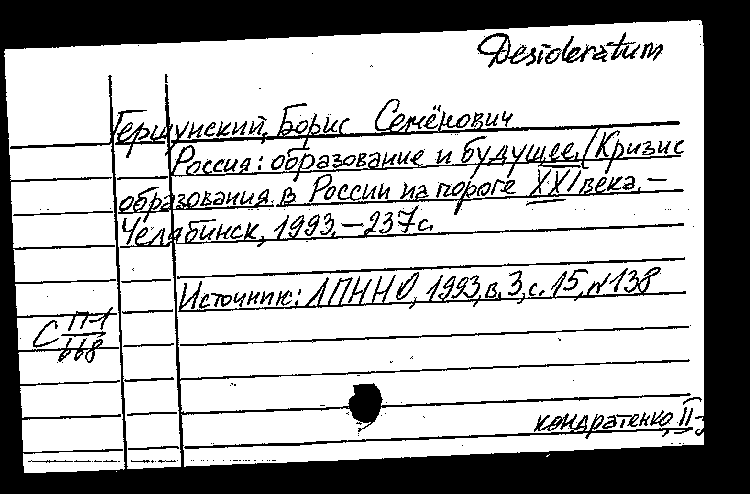 Desideratum
Гершунский, Борис Семёнович
Россия: образование и будущее. (Кризис
образования в России на пороге XXI века. –
Челябинск, 1993. – 237 с.
Источник: ЛПННО, 1993, в. 3, с. 15, № 138
С П-1
668
кондратенко, II-